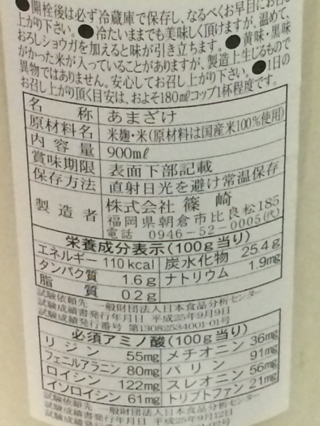 ●開栓後は必ず冷蔵庫で保存し、なるべくお早目にお召し
上がり下さい。●冷たいままでも美味しく頂けますが、温めて、
おろしショウガを加えると味が引き立ちます。●黄味・黒味
がかった米が入っていることがありますが、製造上生じるもので
異物ではありません。安心してお召し上がり下さい。●1日の
お召し上がり頂く目安は、およそ180mlコップ1杯程度です。
名称 あまざけ
原材料名 米麹・米(原材料は国産米100%使用)
内容量 900ml
賞味期限 表面下部記載
保存方法 直射日光を避け常温保存
製造者 株式会社 篠崎
福岡県朝倉市比良松185
電話 0946-52-0005(代)
栄養成分表示(100g当り)
エネルギー 110kcal 炭水化物 25.4g
タンパク質 1.6g ナトリウム 1.9mg
脂質 0.2g
試験依頼先 一般財団法人日本食品分析センター
試験成績書発行年月日 平成25年9月9日
試験成績書発行番号 第13082534001-01号
必須アミノ酸(100g当り)
リジン 55mg メチオニン 36mg
フェニルアラニン 80mg バリン 91mg
ロイシン 122mg スレオニン 56mg
イソロイシン 61mg トリプトファン 21mg
試験依頼先 一般財団法人日本食品分析センター
試験成績書発行年月日 平成25年9月12日